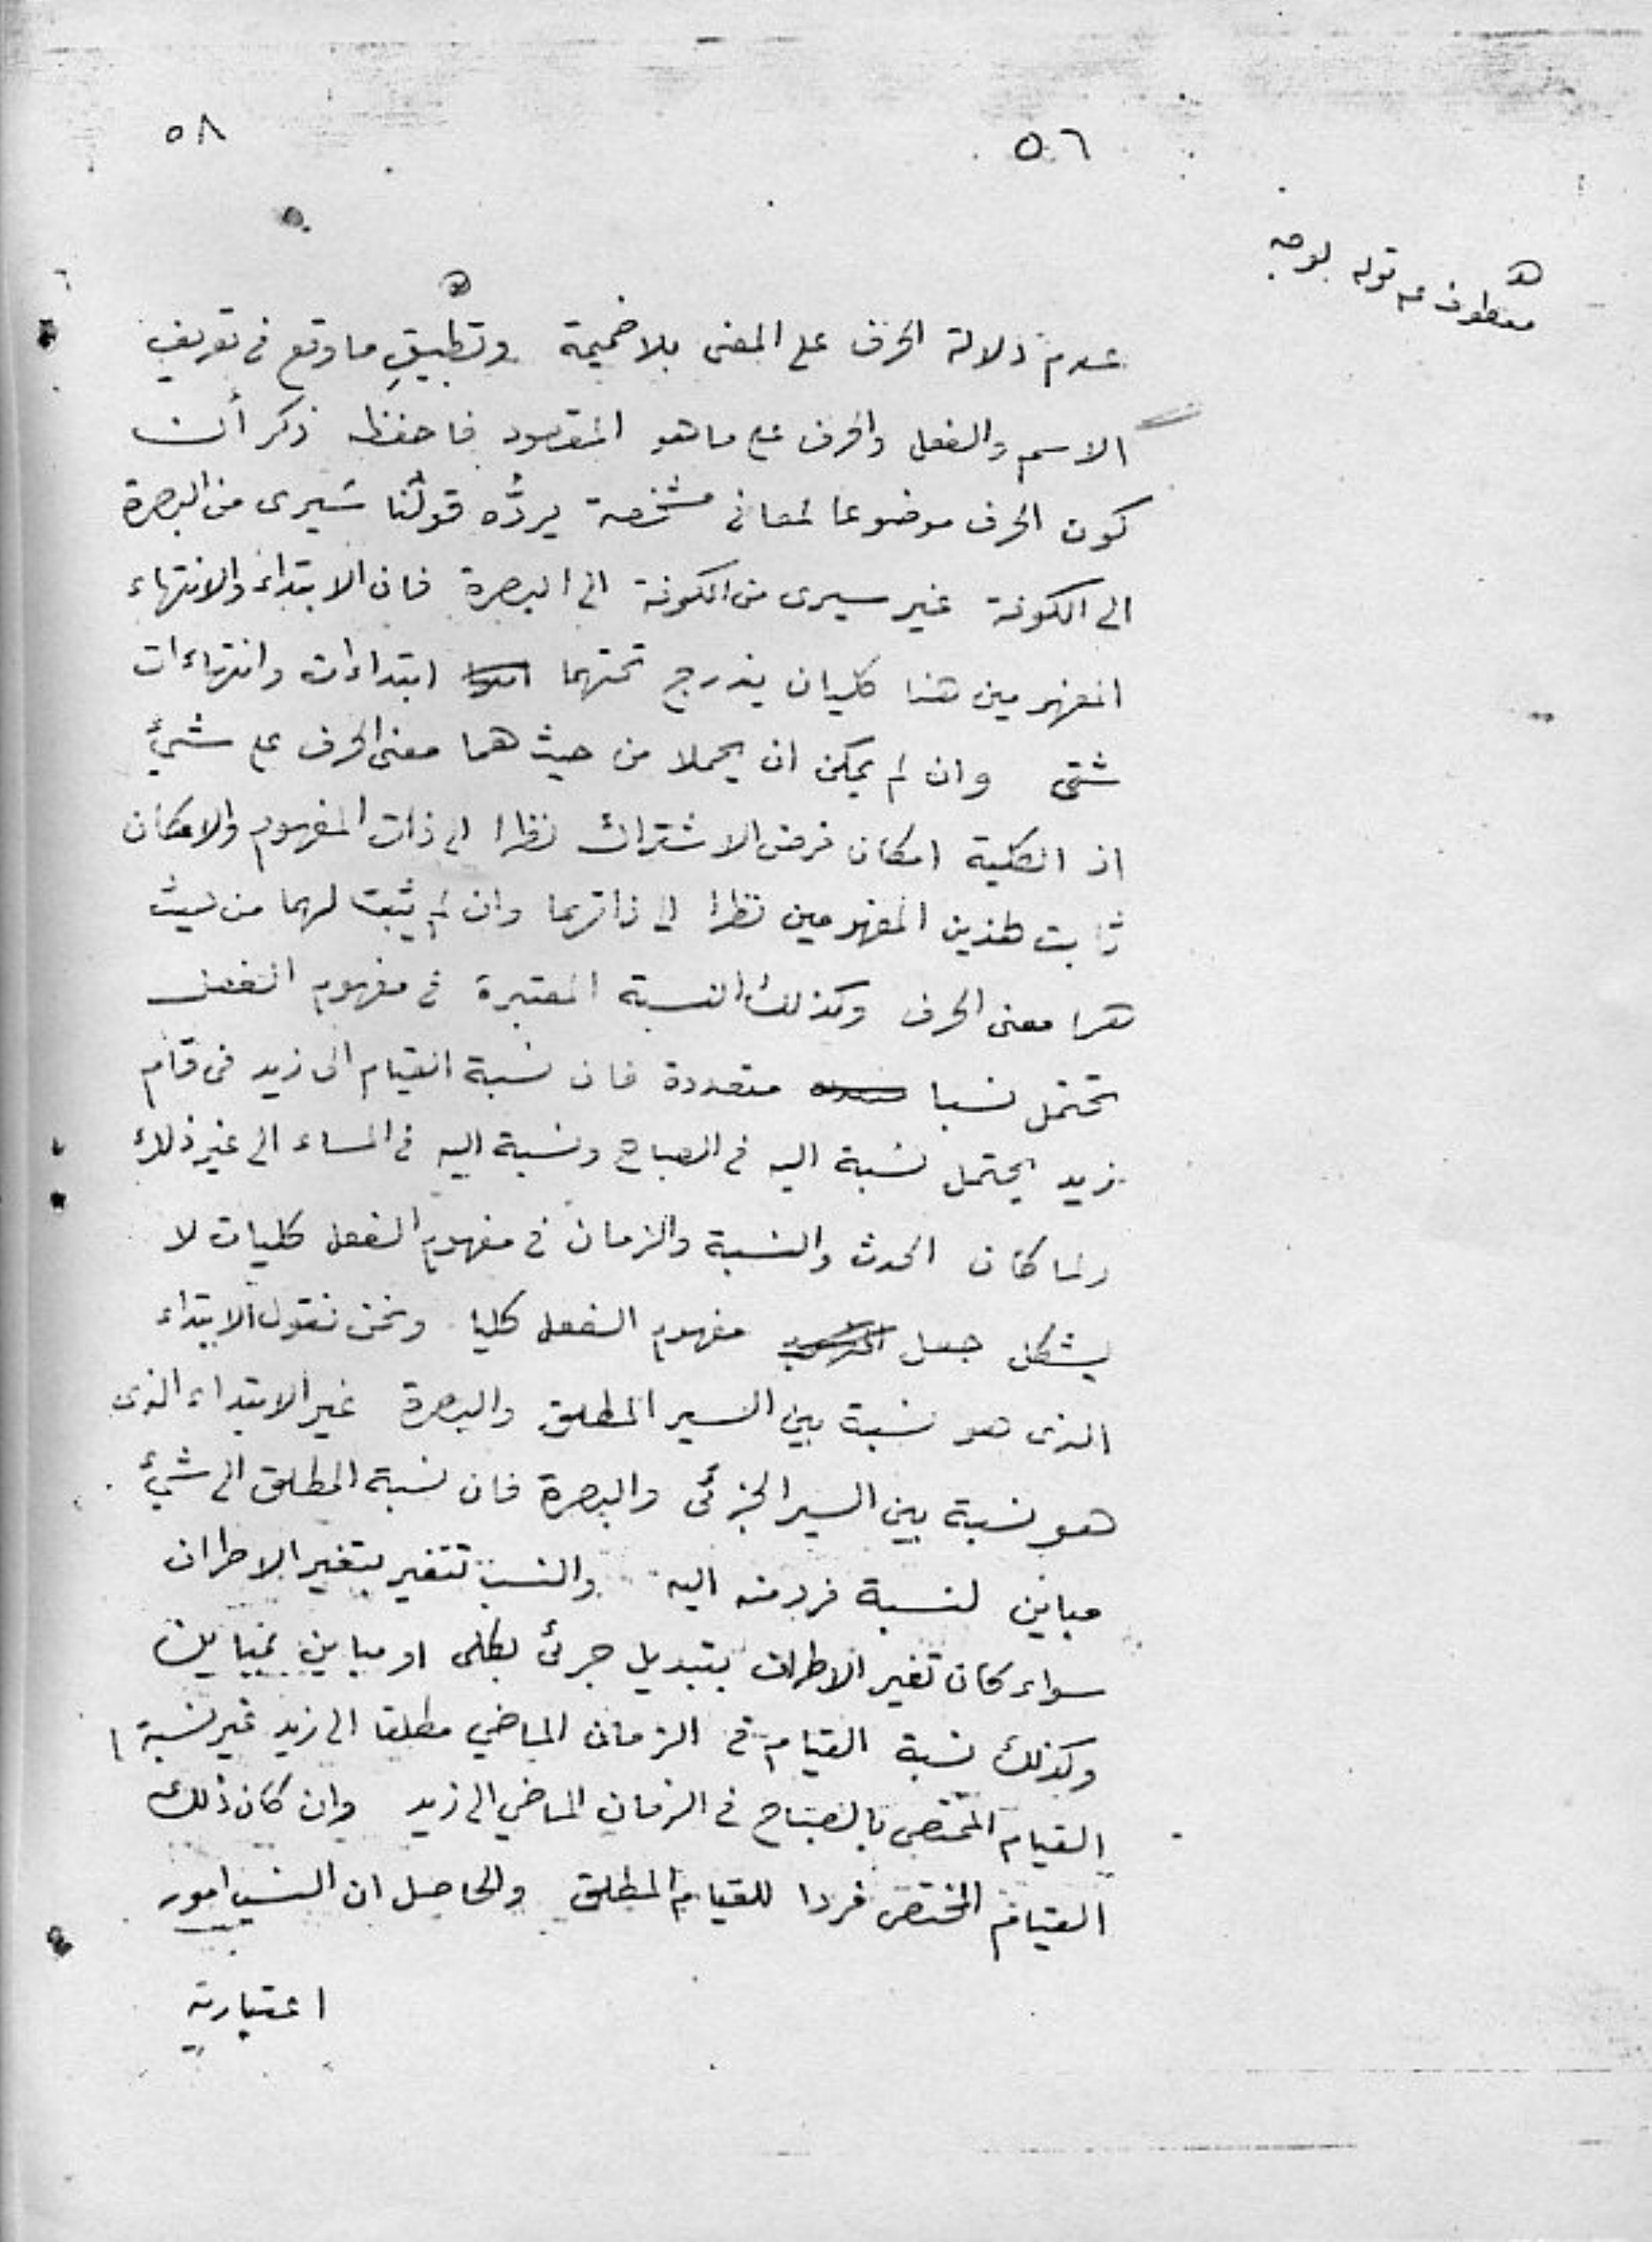 ٥٨
٥٦
معطوف على قوله بوجه
عدم دلالة الحرف على المعنى بلا ضميمة وتطبيقِ ما وقع فى تعريف
الاسم والفعل والحرف على ما هو المقصود فاحفظه ذكر أن
كون الحرف موضوعا لمعانى مشخصة يردُّه قولُنا سَيرى من البصرة
الى الكوفة غير سيرى من الكوفة الى البصرة فان الابتداء والانتهاء
المفهومين هنا كليان يندرج تحتهما ابتداءات وانتهاءات
شتى وان لم يمكن ان يحملا من حيث هما معنى الحرف على شئ
اذ الكلية امكان فرض الاشتراك نظرا الى ذات المفهوم والامكان
ثابت لهذين المفهومين نظرا الى ذاتهما وان لم يثبت لهما من حيث
هما معنى الحرف وكذلك النسبة المعتبرة فى مفهوم الفعل
تحتمل نسبا متعددة فان نسبة القيام الى زيد فى قام
زيد يحتمل نسبة اليه فى الصباح ونسبة اليه فى المساء الى غير ذلك
ولما كان الحدث والنسبة والزمان فى مفهوم الفعل كليات لا
يشكل جعل مفهوم الفعل كليا ونحن نقول الابتداء
الذى هو نسبة بين السير المطلق والبصرة غير الابتداء الذى
هو نسبة بين السير الجزئى والبصرة فان نسبة المطلق الى شئ
مباين لنسبة فرد منه اليه والنسب تتغير بتغير الاطراف
سواء كان تغير الاطراف بتبديل جزئى بكلى او مباين بمباين
وكذلك نسبة القيام فى الزمان الماضي مطلقا الى زيد غير نسبة
القيام المختص بالصباح فى الزمان الماضي الى زيد وان كان ذلك
القيام المختص فردا للقيام المطلق والحاصل ان النسب امور
اعتبارية